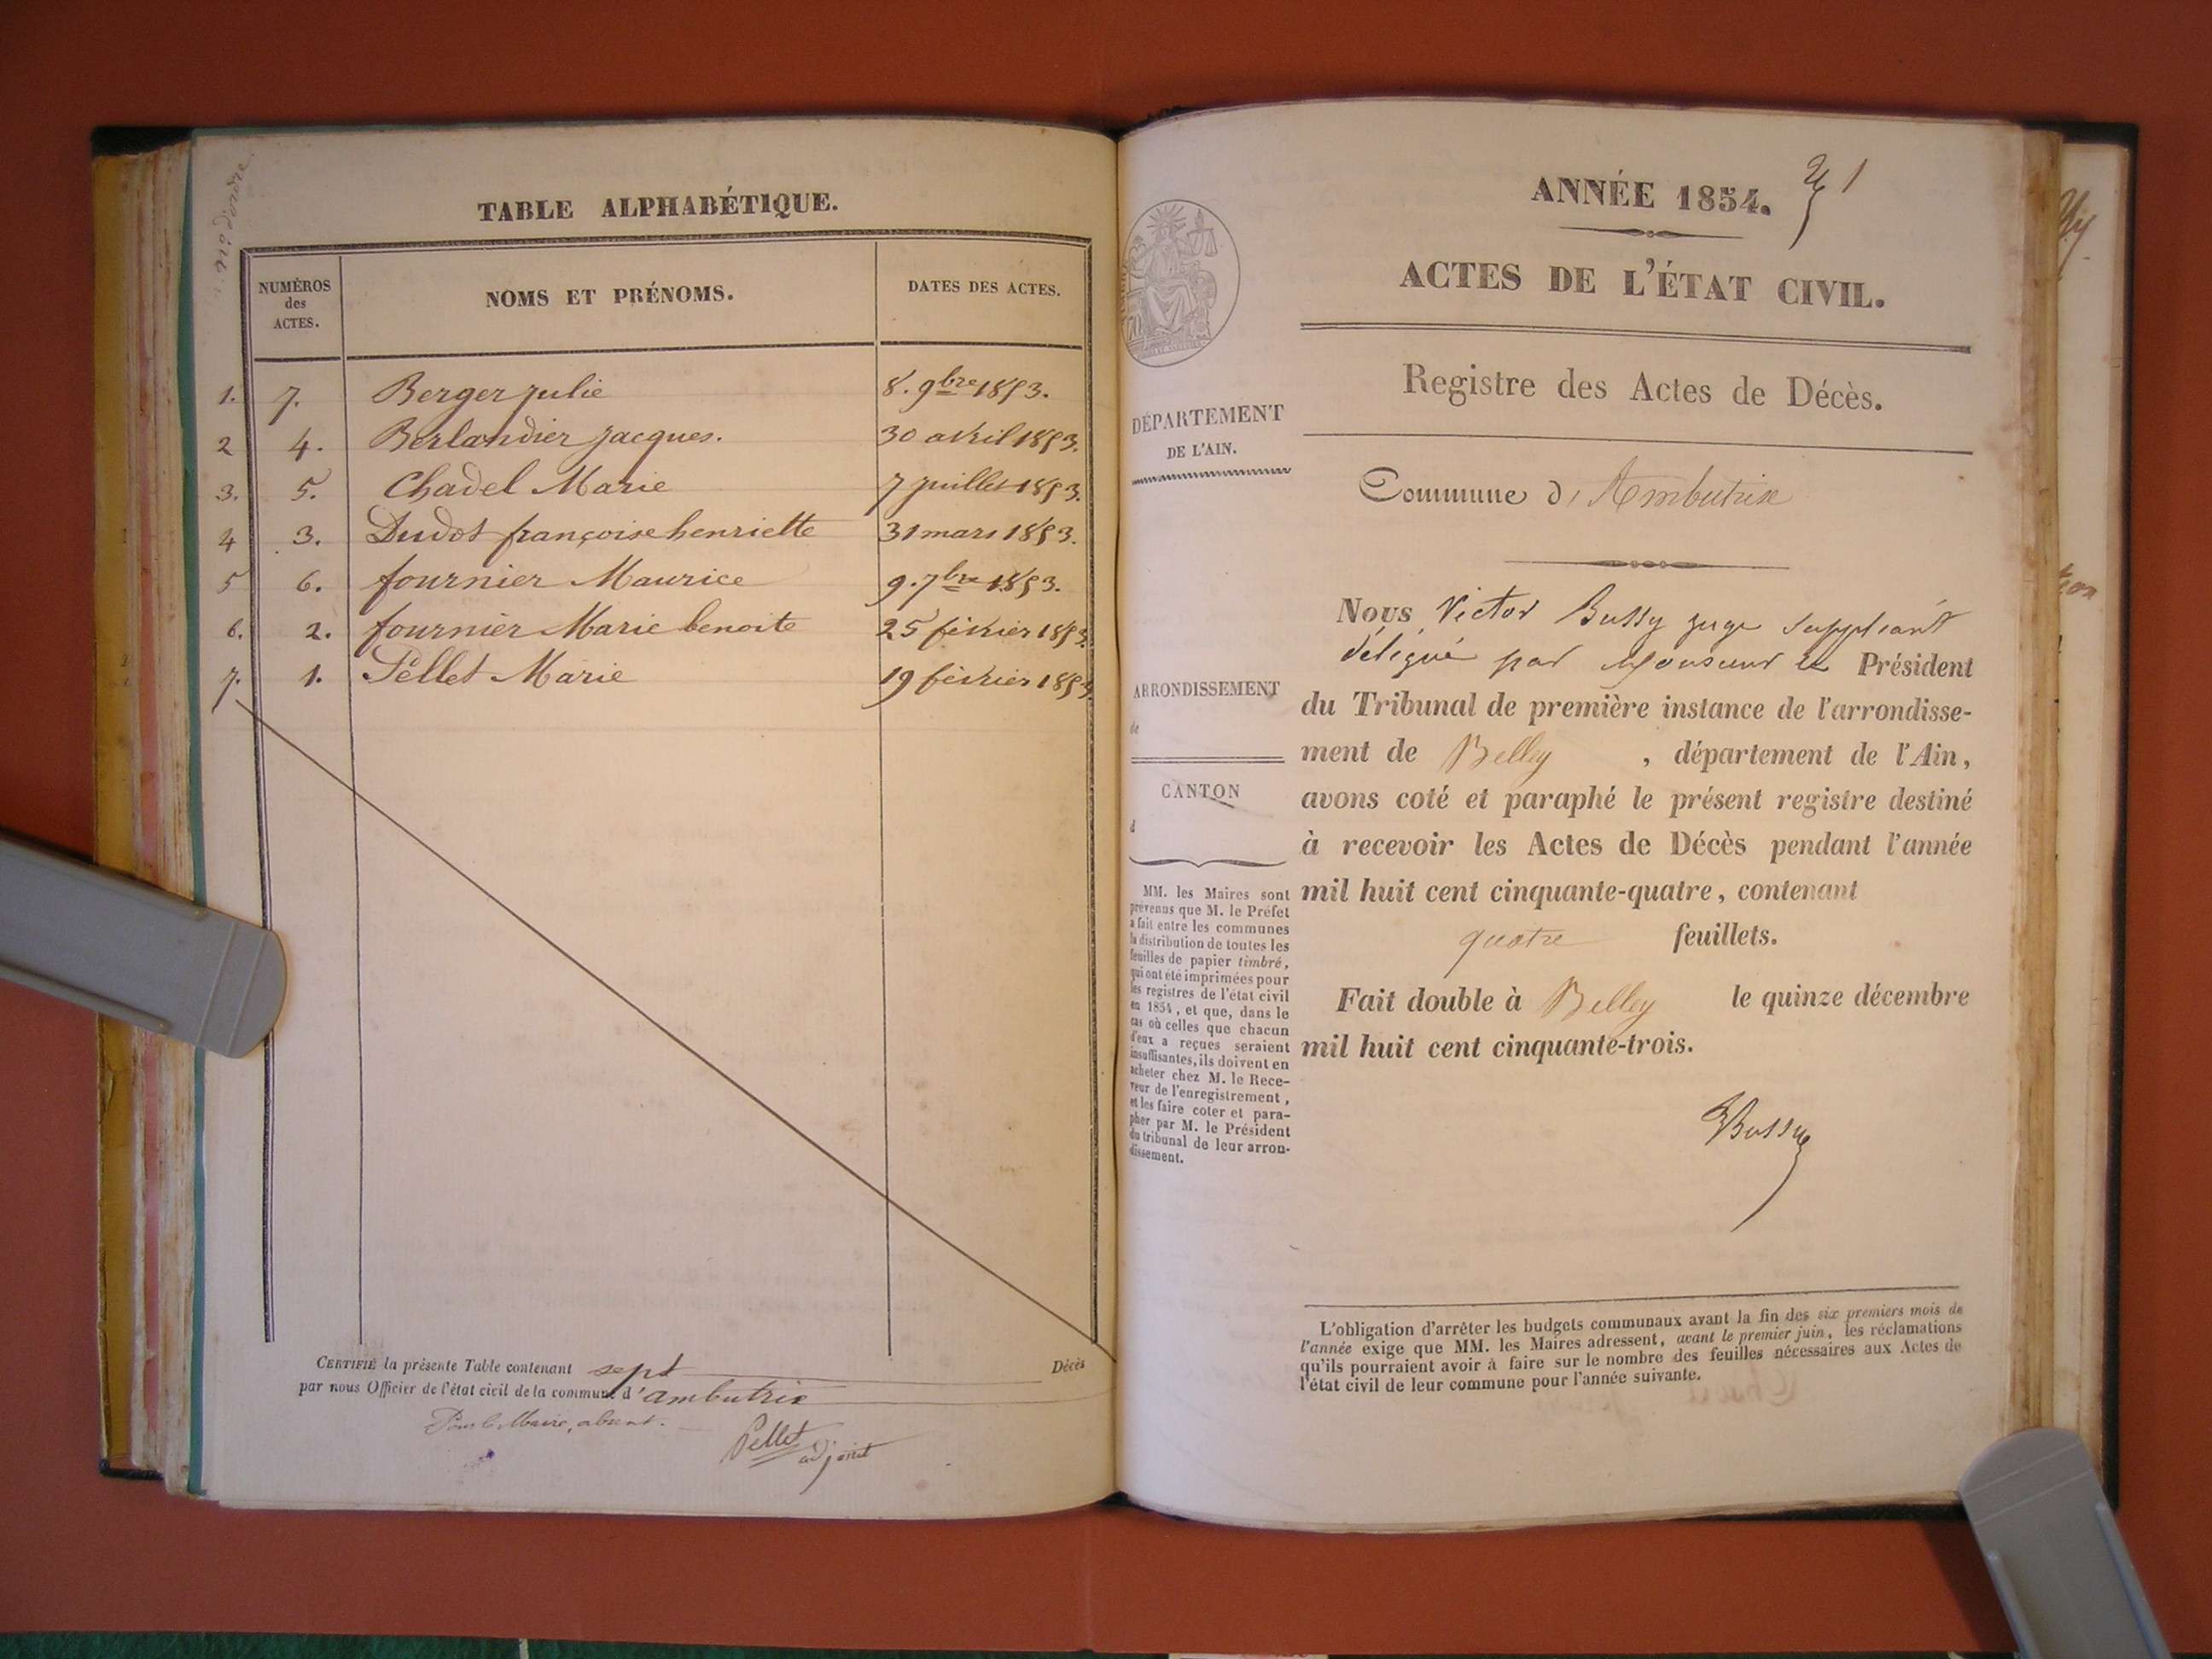 nos d'ordre
TABLE ALPHABÉTIQUE.
NUMÉROS des ACTES. NOMS ET PRÉNOMS. DATES DES ACTES.
1. 7. Berger julie 8. 9bre 1853.
2 4. Berlandier jacques. 30 avril 1853.
3. 5. Chadel Marie 7 juillet 1853.
4 3. Dudot françoise henriette 31 mars 1853.
5 6. fournier Maurice 9. 7bre 1853.
6. 2. fournier Marie benoite 25 février 1853.
7. 1. Pellet Marie 19 février 1853
CERTIFIÉ la présente Table contenant sept Décès
par nous Officier de l'état civil de la commune d'ambutrix
Pour le Maire, absent.
Pellet
adjoint
ANNÉE 1854. 1
ACTES DE L'ÉTAT CIVIL.
Registre des Actes de Décès.
DÉPARTEMENT
DE L'AIN.
Commune d'Ambutrix
Nous Victor Bussy juge suppléant
délégué par Monsieur le Président
du Tribunal de première instance de l'arrondisse-
ment de Belley , département de l'Ain,
avons coté et paraphé le présent registre destiné
à recevoir les Actes de Décès pendant l'année
mil huit cent cinquante-quatre, contenant
quatre feuillets.
Fait double à Belley le quinze décembre
mil huit cent cinquante-trois.
Bussy
ARRONDISSEMENT
de
CANTON
d
MM. les Maires sont
prévenus que M. le Préfet
a fait entre les communes
la distribution de toutes les
feuilles de papier timbré,
qui ont été imprimées pour
les registres de l'état civil
en 1854, et que, dans le
cas où celles que chacun
d'eux a reçues seraient
insuffisantes, ils doivent en
acheter chez M. le Rece-
veur de l'enregistrement,
et les faire coter et para-
pher par M. le Président
du tribunal de leur arron-
dissement.
L'obligation d'arrêter les budgets communaux avant la fin des six premiers mois de
l'année exige que MM. les Maires adressent, avant le premier juin, les réclamations
qu'ils pourraient avoir à faire sur le nombre des feuilles nécessaires aux Actes de
l'état civil de leur commune pour l'année suivante.